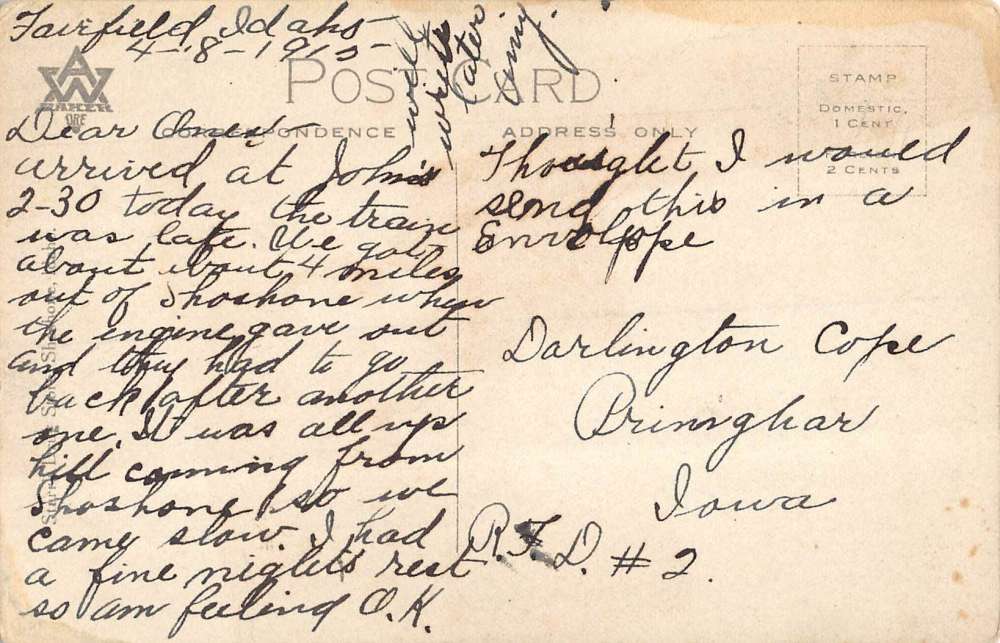 Fairfield, Idaho
4-8-1915
will
write
later
Amy.
POST CARD
CORRESPONDENCE
ADDRESS ONLY
STAMP
DOMESTIC,
1 CENT
2 CENTS
Dear Ones -
arrived at John's
2-30 today the train
was late. We got
about about 4 miles
out of Shoshone when
the engine gave out
and they had to go
back after another
one. It was all up
hill coming from
Shoshone so we
came slow. I had
a fine night's rest
so am feeling O.K.
Thought I would
send this in a
Envolope
Darlington Cope
Primghar
Iowa
R.F.D. #2.